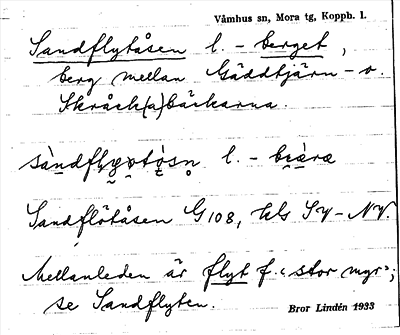 Våmhus sn, Mora tg, Koppb. l.
Sandflytåsen l. - berget,
berg mellan Gäddtjärn - o.
Skråck(a)bäckarna.
sàndfly̯ɷtò̯sn̥ l. - bɛ̯àræ
Sandflötåsen G 108, hls SV - NV.
Mellanleden är flyt f. "stor myr";
se Sandflyten.
Bror Lindén 1933